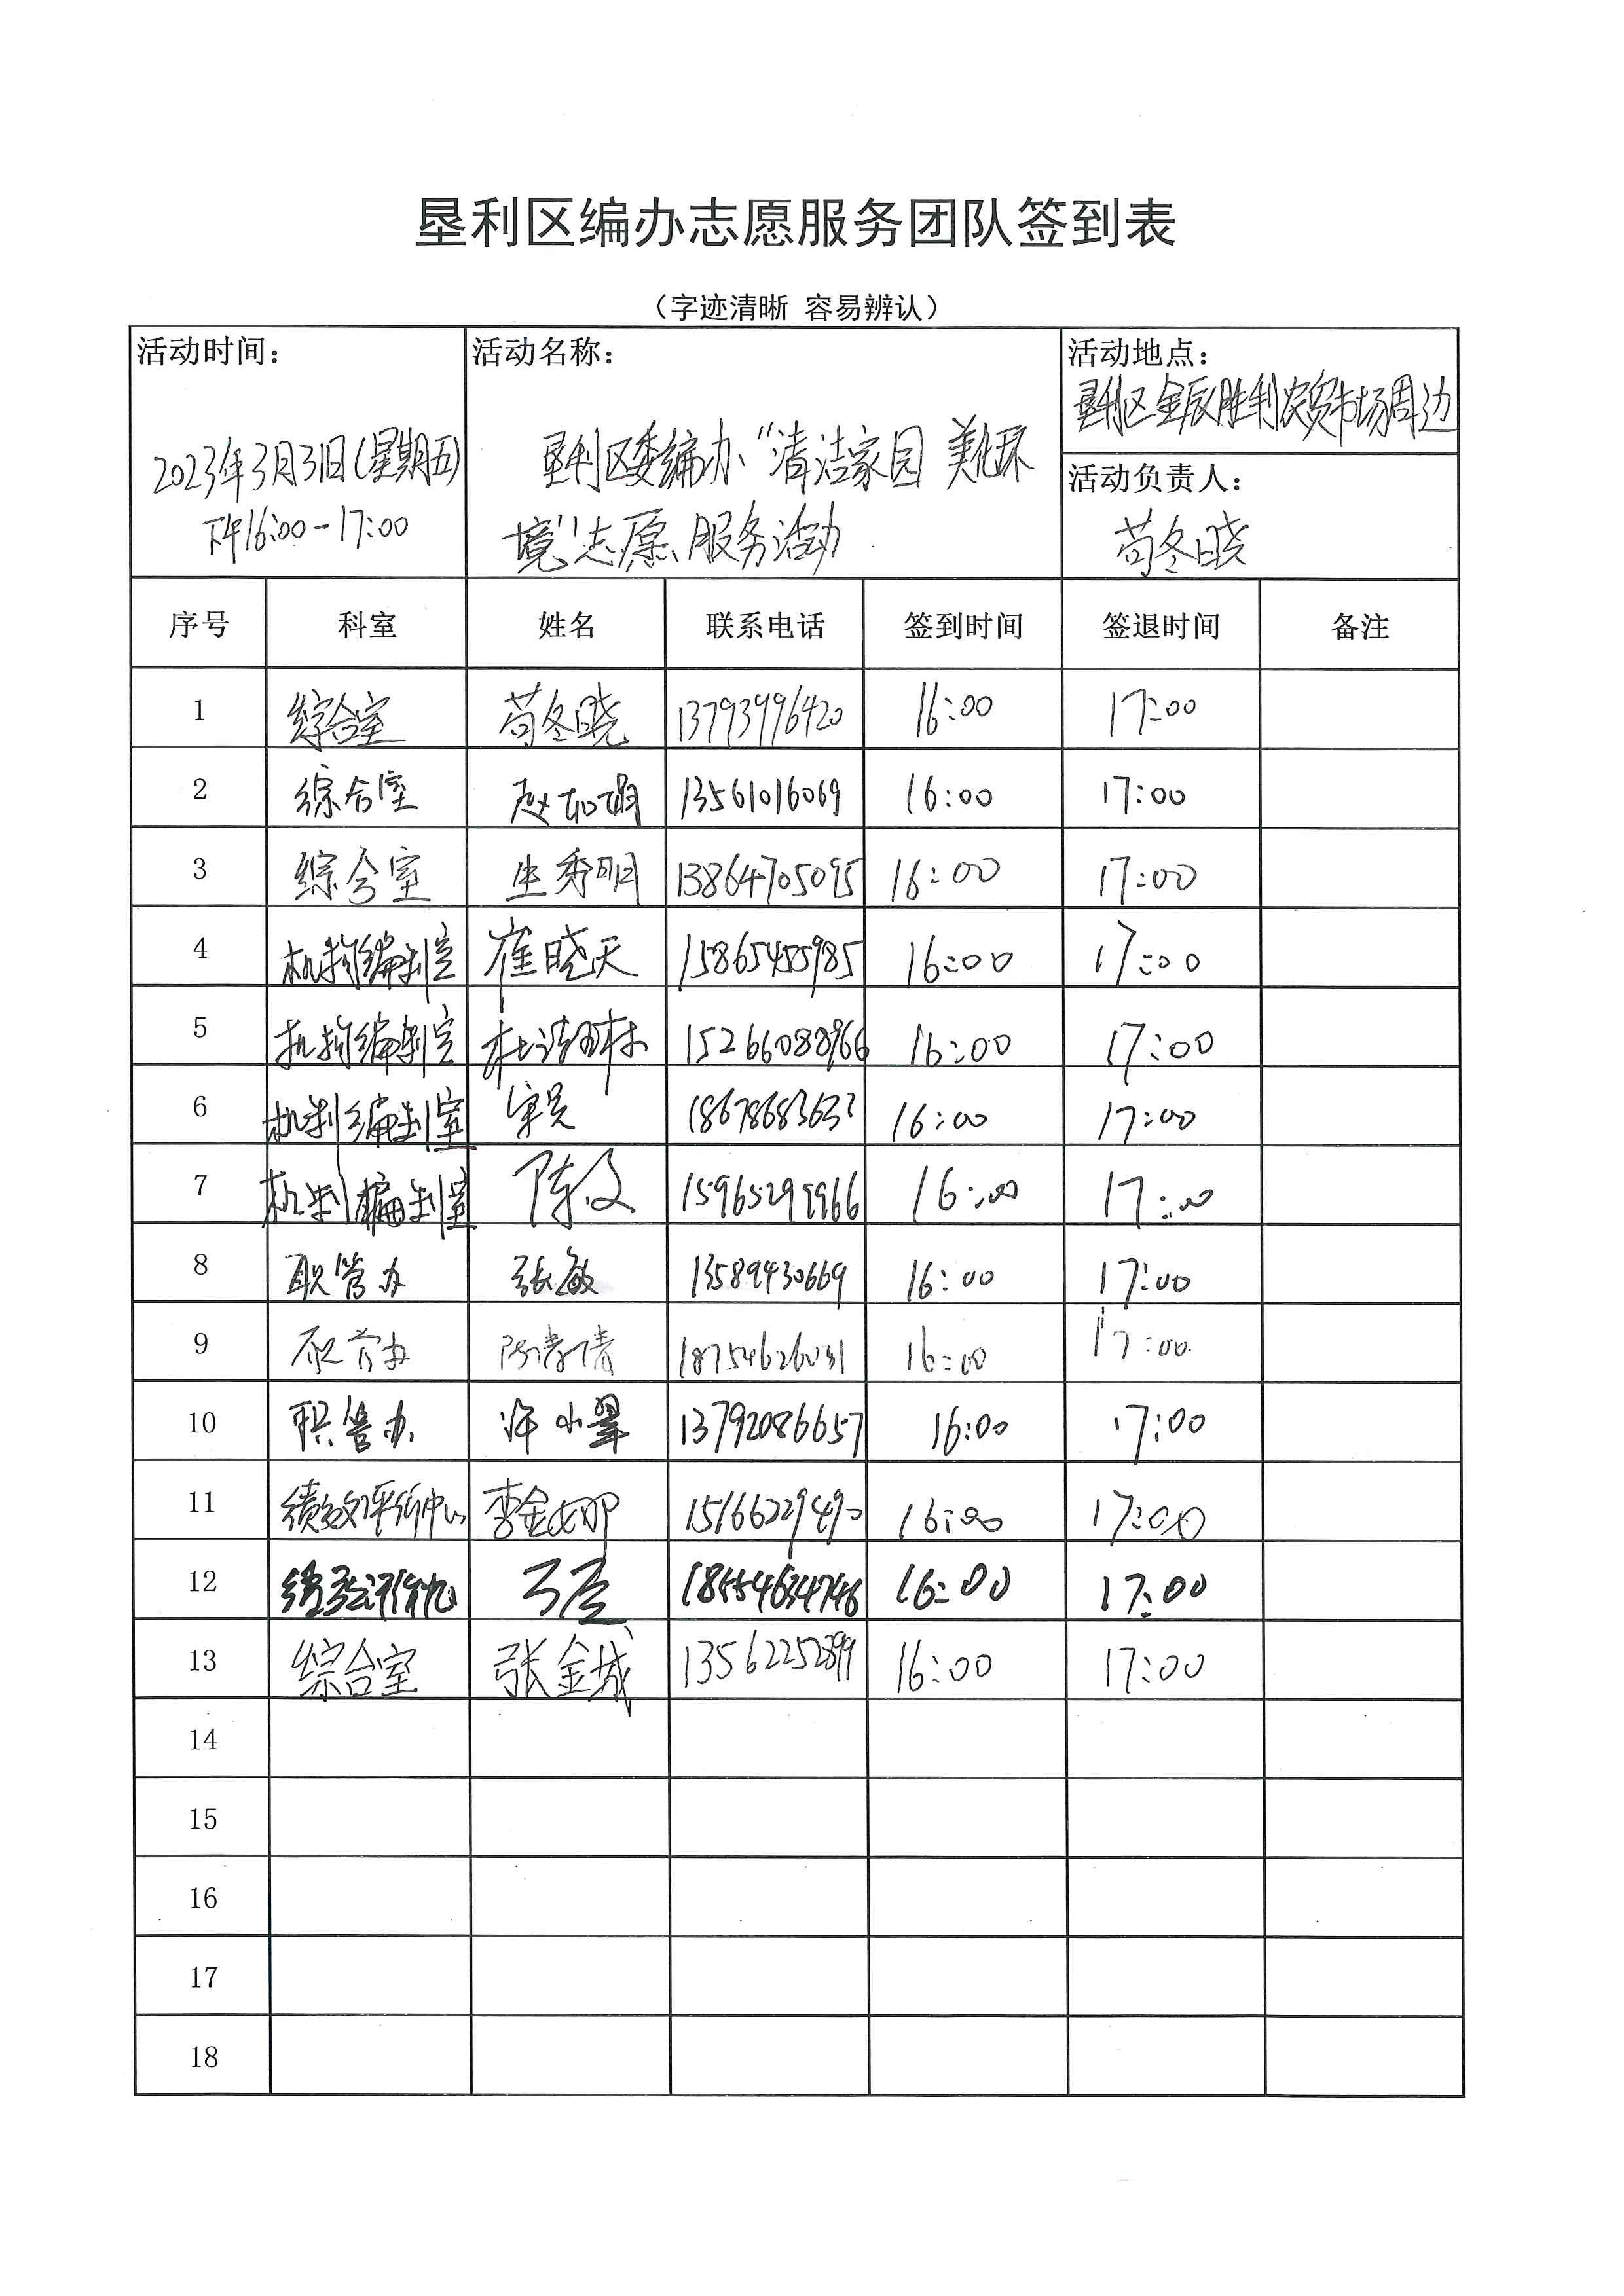 垦利区编办志愿服务团队签到表
（字迹清晰 容易辨认）
活动时间：
2023年3月31日(星期五)
下午16:00-17:00
活动名称：
垦利区委编办“清洁家园 美化环
境”志愿服务活动
活动地点：
垦利区金辰胜利农贸市场周边
活动负责人：
苟冬晓
序号 科室 姓名 联系电话 签到时间 签退时间 备注
1 综合室 苟冬晓 13793996420 16:00 17:00
2 综合室 赵如娟 13561016069 16:00 17:00
3 综合室 生秀明 13864705095 16:00 17:00
4 机构编制室 崔晓天 15865455985 16:00 17:00
5 机构编制室 15266088966 16:00 17:00
6 机构编制室 16:00 17:00
7 机构编制室 陈文 15965299966 16:00 17:00
8 职管办 张敏 13589430669 16:00 17:00
9 职管办 18754626031 16:00 17:00
10 职管办 许小翠 13792086657 16:00 17:00
11 绩效评价中心 李金娜 16:00 17:00
12 绩效评价中心 18554634746 16:00 17:00
13 综合室 张金城 13562252899 16:00 17:00
14
15
16
17
18